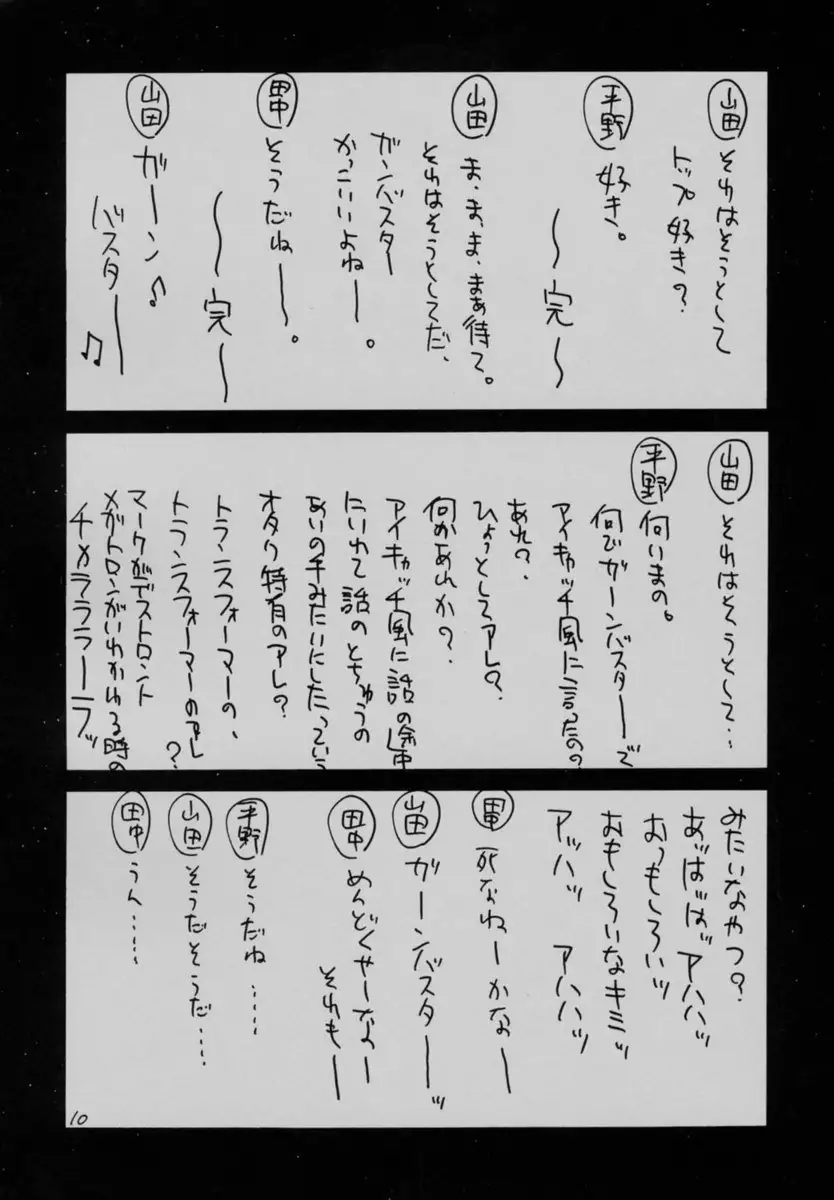 山田
それはそうとして
トップ好きの?
平野
好き。
〜完〜
山田
ま、ま、ま、まぁ待て。
それはそうとしてだ、
ガンバスター
かっこいいよねー。
田中
そうだねー。
〜完〜
山田
ガーン♪
バスター♫
山田
それはそうとして…
平野
何いまの。
何でガーンバスターで
アイキャッチ風に言ったの?
あれ?
ひょっとしてアレ?
何かあれか?
アイキャッチ風に話の途中
にいれて話のとちゅうの
あいの手みたいにしたっていう
オタク特有のアレ?
トランスフォーマーの、
トランスフォーマーのアレ?
マークがデストロント
メガトロンがいれかわる時の
チメラララーラッ
みたいなやつ?
あッはッはッアハハッ
おっもしろいッ
おもしろいなキミッ
アッハッ アハハッ
田中
死なねーかなー
山田
ガーンバスターッ
田中
めんどくせーなー
それもー
平野
そうだね……
山田
そうだそうだ……
田中
うん……
10